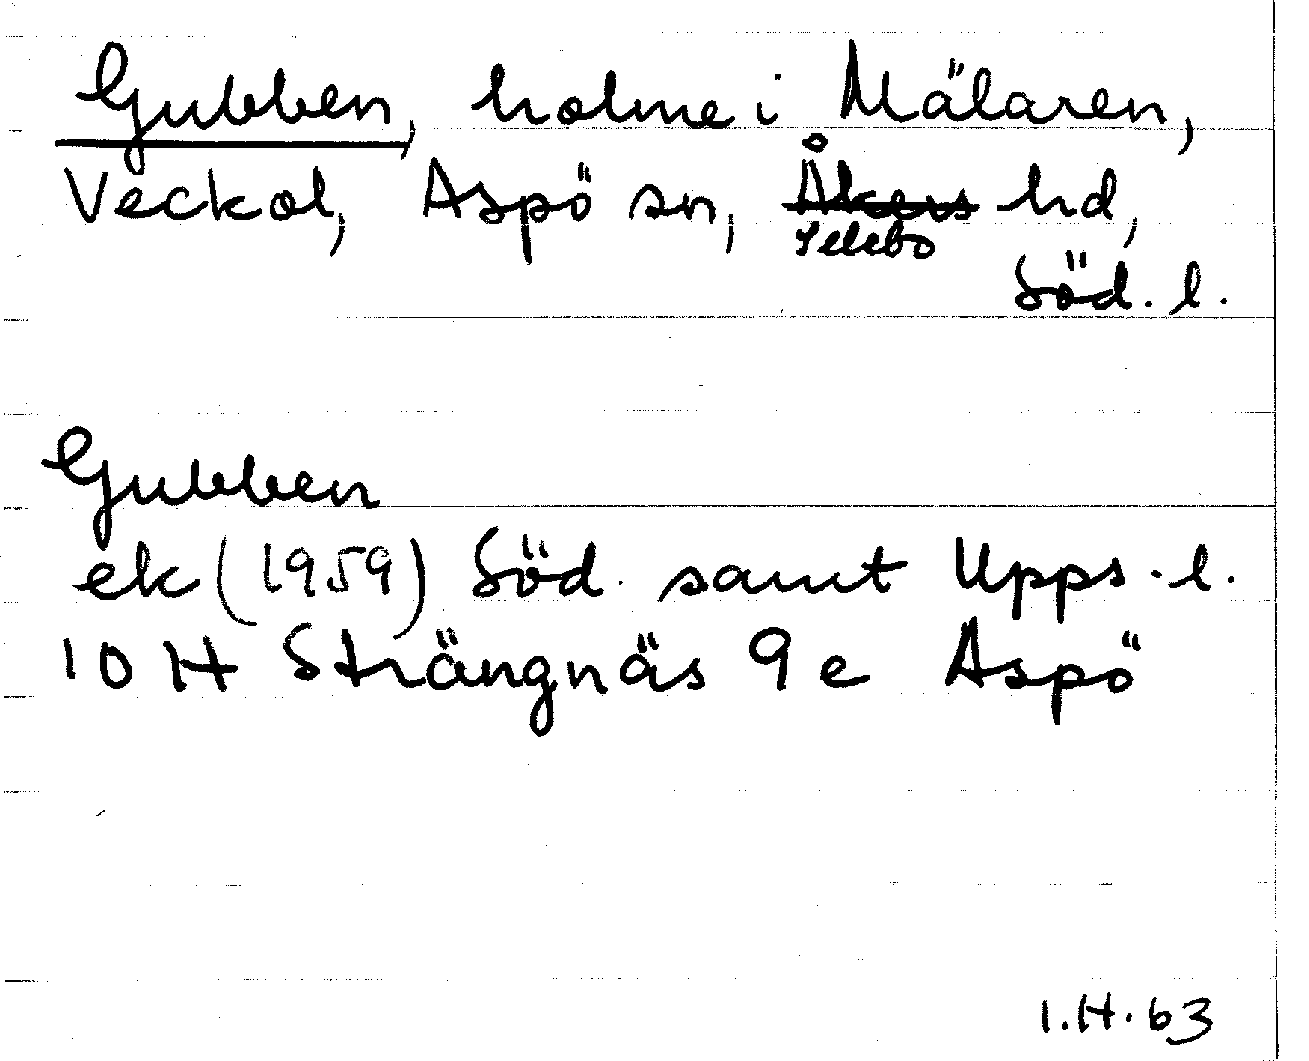 Gubben, holme i Mälaren,
Veckol, Aspö sn, Åkers hd,
Selebo
Söd. l.
Gubben
ek (1959) Söd. samt Upps. l.
10 H Strängnäs 9 e Aspö
I.H. 63